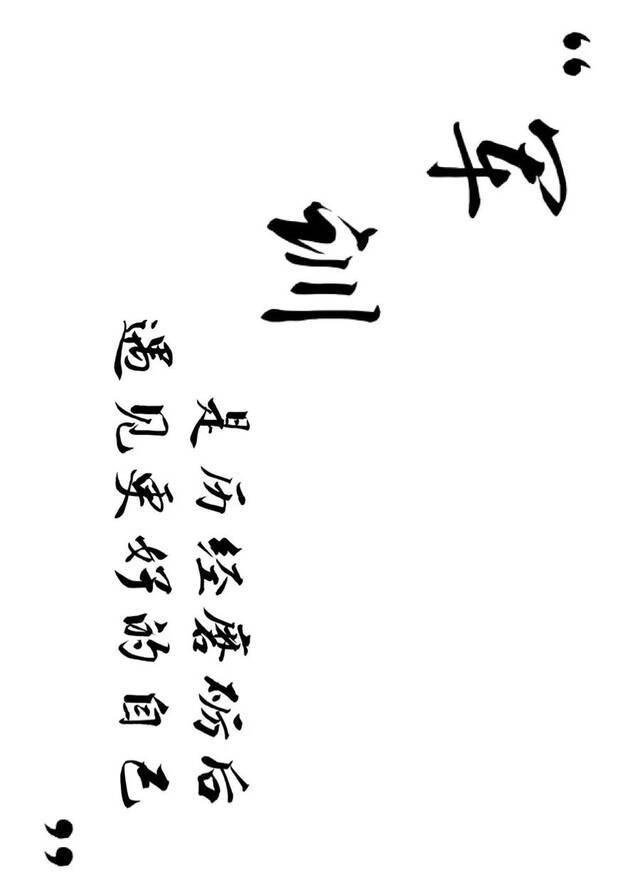 “军训
是历经磨砺后
遇见更好的自己”